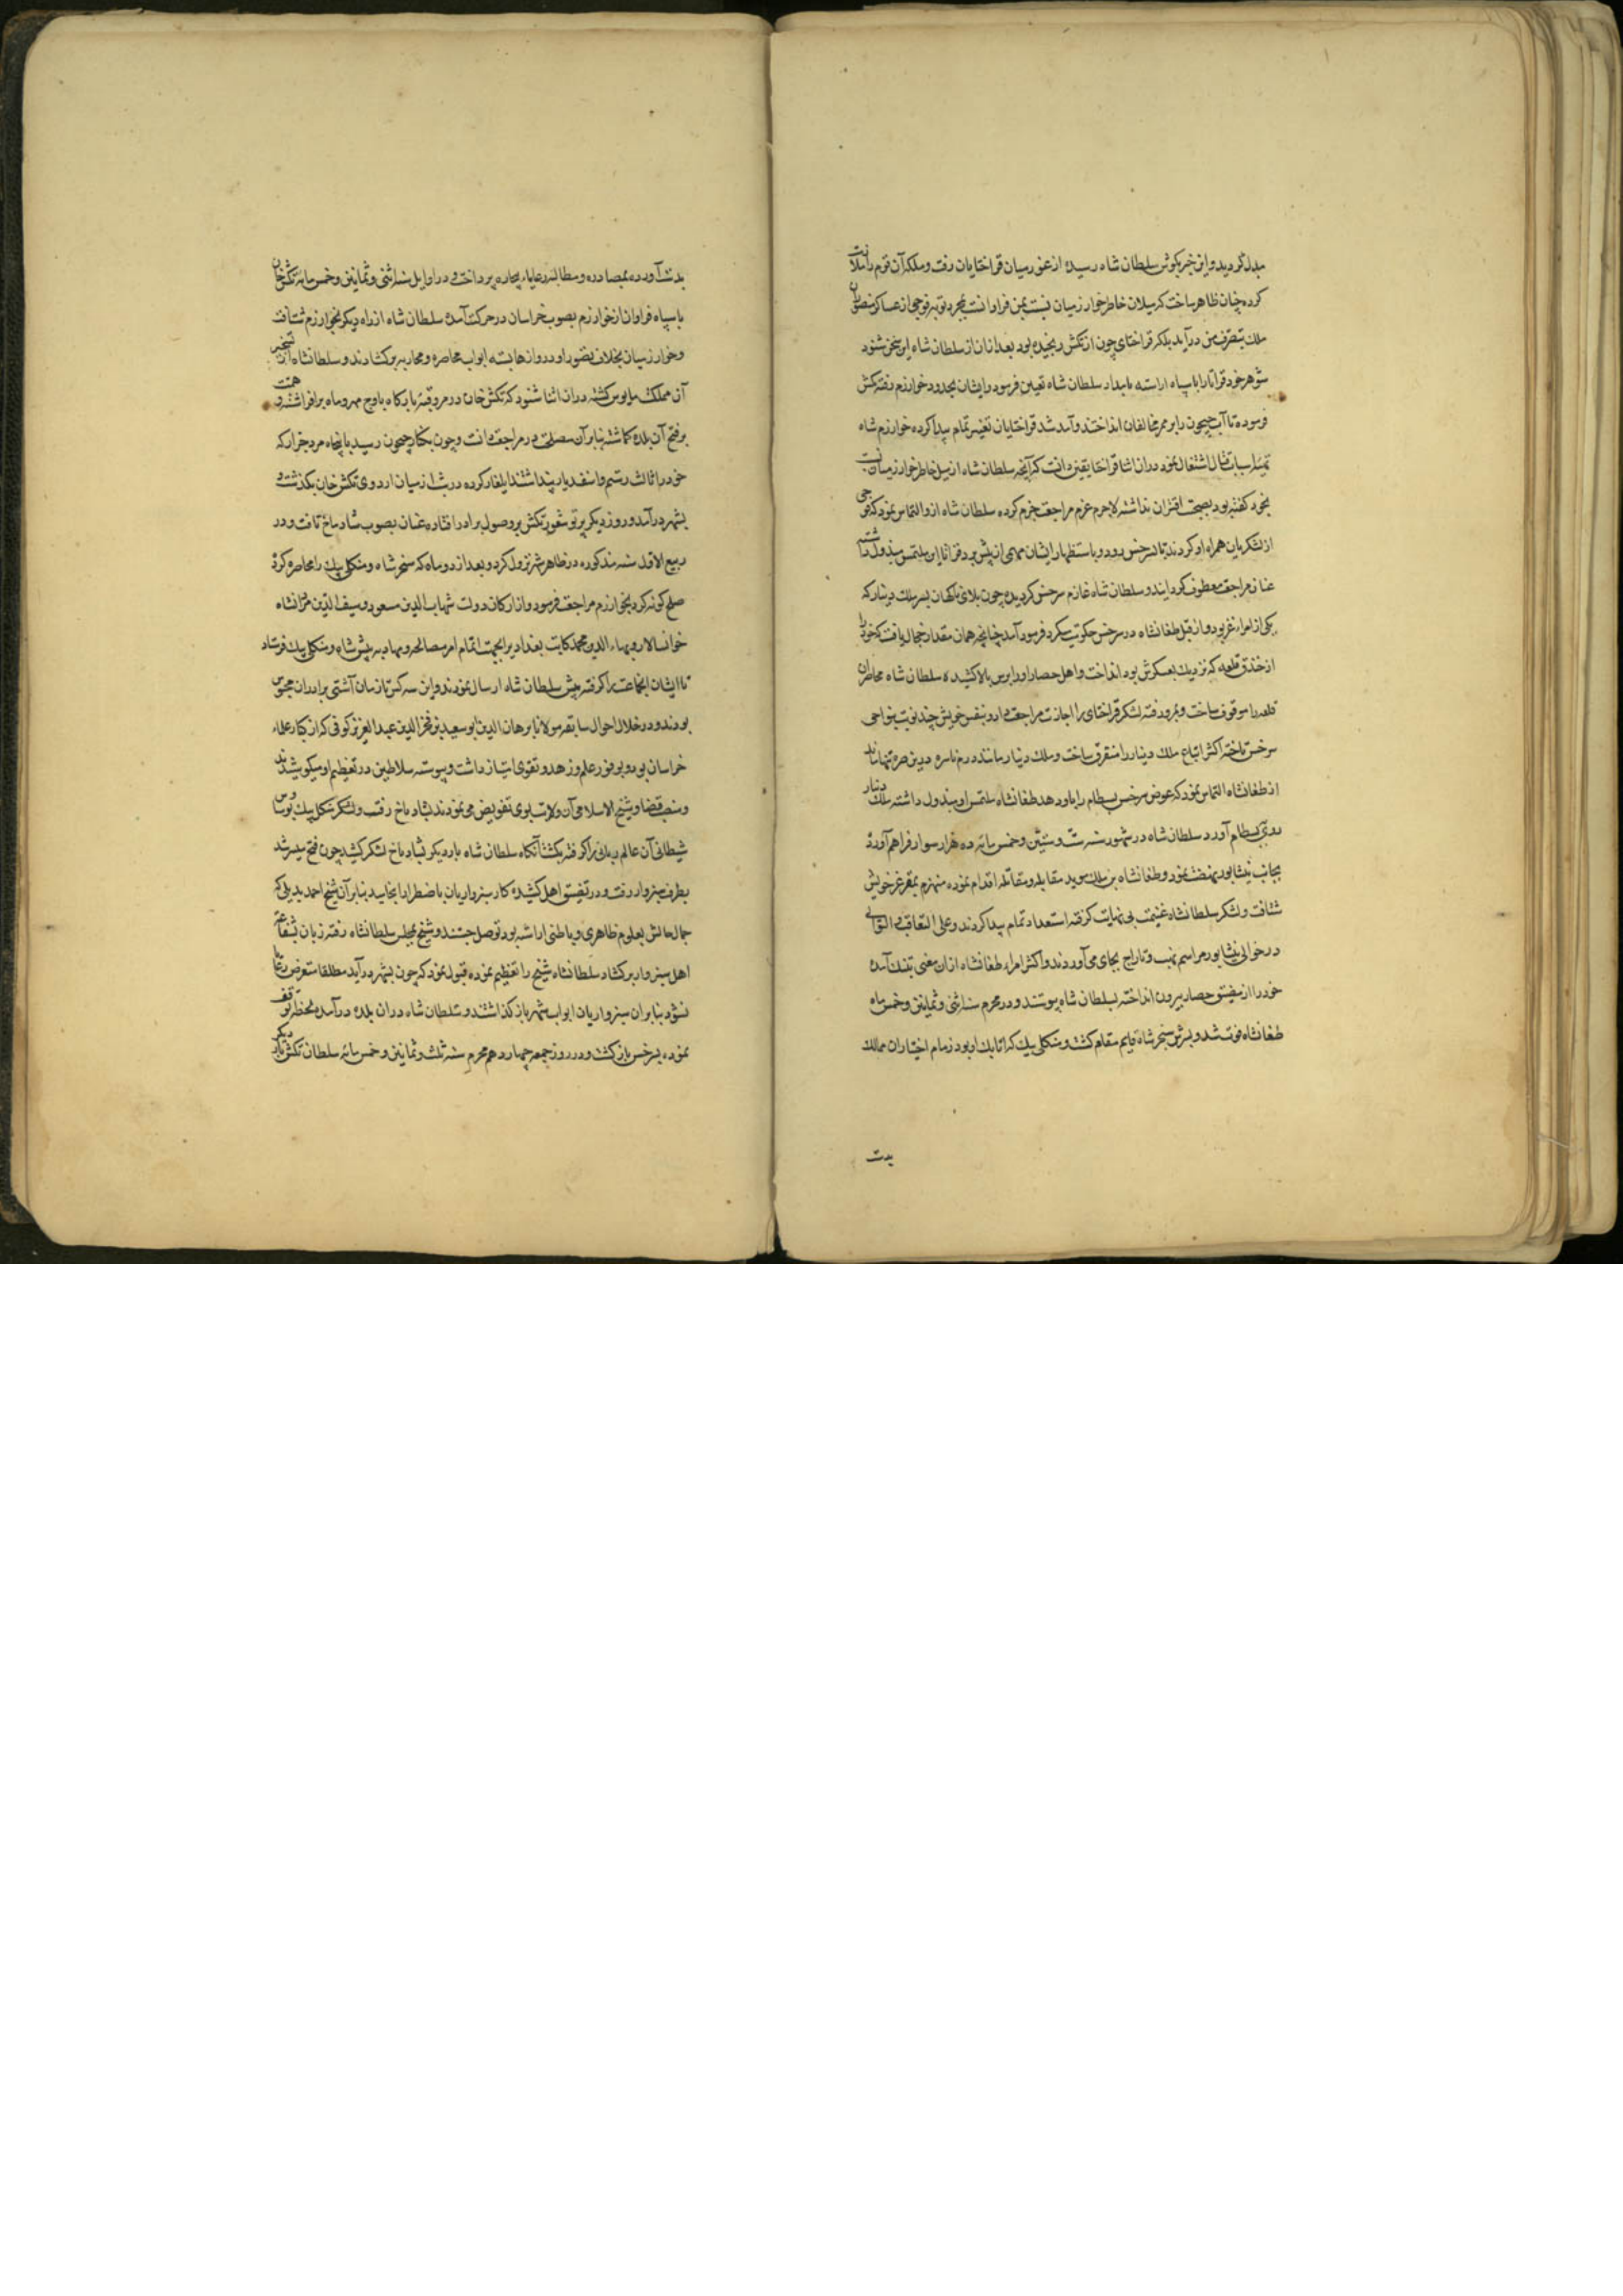 مبدل گردید و این خبر بگوش سلطان شاه رسیده از غور میان قراختایان رفت و ملکه آن قوم را ملاقات
کرده چنان ظاهر ساخت که میلان خاطر خوارزمیان نسبت بمن فراوانست بمجرد توجه فوجی از عساکر منصوره آن
ملک بتصرف من درآید ملکه قراختای چون از تکش رنجیده بود بعد از آن از سلطان شاه این سخن شنود
شوهر خود قراتا را با سپاه اراسته بامداد سلطان شاه تعیین فرمود و ایشان بحدود خوارزم رفته تکش
فرموده تا آب جیحون را بر ممر مخالفان انداختند و آمد شد قراختایان تعسر تمام پیدا کرده خوارزم شاه
بتهیه اسباب قتال اشتغال نمود در ان اثنا قراتا یقین دانست که آنچه سلطان شاه از میل خاطر خوارزمیان نسبت
بخود گفته بود بصحت اقتران نداشته لاجرم عزم مراجعت جزم کرده سلطان شاه ازو التماس نمود که فوجی
از لشکریان همراه او کردند تا بسرخس رود و باستظهار ایشان مهمی از پیش برد قراتا این ملتمس مبذول داشته
عنان مراجعت معطوف گردانید و سلطان شاه عازم سرخس گردیده چون بلای ناگهان بسر ملک دینار که
یکی از امراء غز بود و از قبل طغانشاه در سرخس حکومت میکرد فرود آمد چنانچه همان مقدار مجال یافت که خود را
از خندق قلعه که نزدیک بعسکرش بود انداخت و اهل حصار او را برسن بالا کشیده سلطان شاه محاصره آن
قلعه را موقوف ساخت و بمرو رفته لشکر قراختای را اجازت مراجعت داد و بنفس خویش چند نوبت بنواحی
سرخس تاخته اکثر اتباع ملک دینار را متفرق ساخت و ملک دینار مانند درم ناسره در بن صره تنها ماند
از طغانشاه التماس نمود که عوض سرخس بسطام را باو دهد طغانشاه ملتمس او مبذول داشته ملک دینار
روی ببسطام آورد سلطان شاه در شهور سنه ست و ستین و خمس مائه ده هزار سوار فراهم آورده
بجانب نیشابور نهضت نمود و طغانشاه بن ملک موید مقابله و مقاتله اقدام نموده منهزم بمقر عز خویش
شتافت و لشکر سلطانشاه غنیمت بی نهایت گرفته استعداد تمام پیدا کردند و علی التعاقب و التوالی
در حوالی نیشابور مراسم نهب و تاراج بجای می آوردند و اکثر امراء طغانشاه ازان معنی بتنک آمده
خود را از مضیق حصار بیرون انداخته بسلطان شاه پیوستند و در محرم سنه اثنی و ثمانین و خمس مائه
طغانشاه فوت شد و پسرش سنجر شاه قایم مقام گشت و منکلی بیک که اتابک او بود زمام اختیار ان ممالک
بدست
بدست آورده بمصادره و مطالبه رعایاء بیچاره پرداخت و در اوایل سنه اثنی و ثمانین و خمس مائه تکش خان
با سپاه فراوان از خوارزم بصوب خراسان در حرکت آمده سلطان شاه از راه دیگر بخوارزم شتافت
و خوارزمیان بخلاف تصور او دروازها بسته ابواب محاصره و محاربه برکشادند و سلطانشاه از تسخیر
آن مملکت مایوس گشته دران اثنا شنود که تکش خان در مرو قبه بارگاه باوج مهر و ماه برافراشته و همت
بر فتح آن بلده گماشته بنابر آن مصلحت در مراجعت دانست و چون بکنار جیحون رسید با پنجاه مرد جرار که
خود را ثالث رستم و اسفندیار پنداشتند ایلغار کرده در شب از میان اردوی تکش خان بگذشت و
بشهر درآمد و روز دیگر پرتو شعور تکش بر وصول برادر افتاده عنان بصوب شادیاخ تافت و در
ربیع الاول سنه مذکوره در ظاهر شهر نزول کرد و بعد از دو ماه که سنجر شاه و منکلی بیک را محاصره کرد
صلح گونه کرد بخوارزم مراجعت فرمود و از ارکان دولت شهاب الدین مسعود و سیف الدین مردانشاه
خوانسالار و بهاء الدین محمد کاتب بغدادی را بجهت اتمام امر مصالحه و مهادنه پیش شاه و منکلی بیک فرستاد
تا ایشان آن جماعت را گرفته پیش سلطان شاه ارسال نمودند و این سه کس تا زمان آشتی برادران محبوس
بودند و در خلال احوال سابقه مولانا برهان الدین ابو سعید بن فخر الدین عبد العزیز کوفی که از کبار علماء
خراسان بود و بوفور علم و زهد و تقوی امتیاز داشت و پیوسته سلاطین در تعظیم او میکوشیدند
و منصب قضا و شیخ الاسلامی آن ولایت بوی تفویض می نمودند بشادیاخ رفت و لشکر منکلی بیک بوساوس
شیطانی آن عالم ربانی را گرفته بکشت آنگاه سلطان شاه بار دیگر بشادیاخ لشکر کشید چون فتح میسر نشد
بطرف سبزوار رفت و در تضییق اهل کشیده کار سبزواریان باضطرار انجامید بنابر آن شیخ احمد بدیلی که
جمال حالش بعلوم ظاهری و باطنی اراسته بود توصل جستند و شیخ بمجلس سلطانشاه رفته زبان بشفاعت
اهل سبزوار برکشاد سلطانشاه شیخ را تعظیم نموده قبول نمود که چون بشهر درآید مطلقا متعرض رعایا
نشود بنابران سبزواریان ابواب شهر باز گذاشتند و سلطان شاه دران بلده درآمده لحظه توقف
نموده بسرخس بازگشت و در روز جمعه چهاردهم محرم سنه ثلث و ثمانین و خمس مائه سلطان تکش بار دیگر